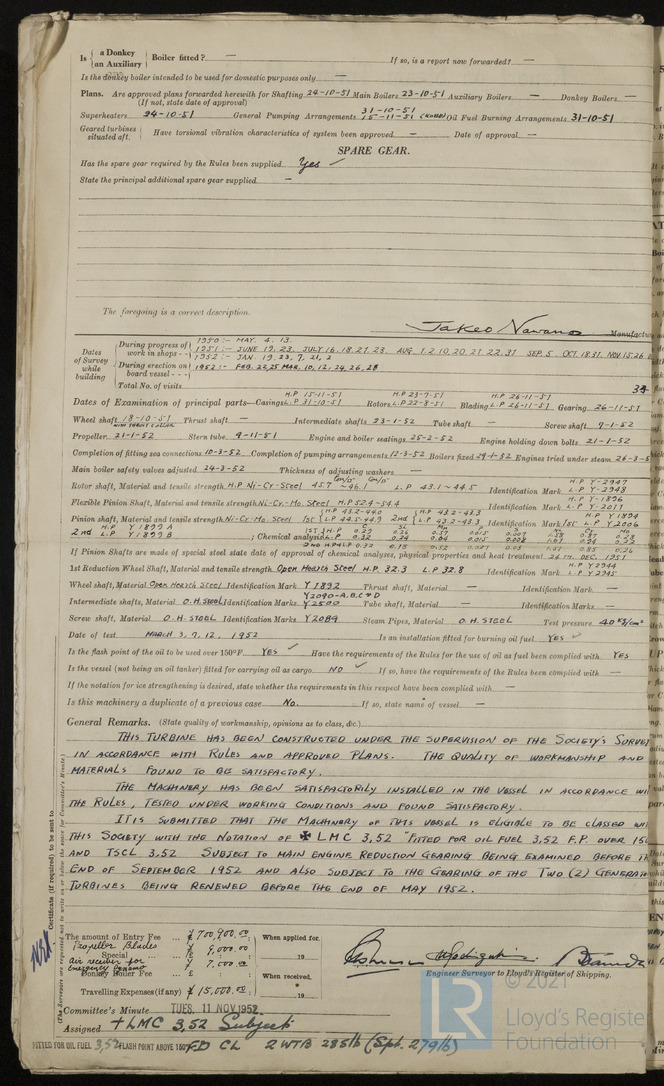 Is { a Donkey / an Auxiliary } Boiler fitted? — If so, is a report now forwarded? —
Is the donkey boiler intended to be used for domestic purposes only —
Plans. Are approved plans forwarded herewith for Shafting 24-10-51 Main Boilers 23-10-51 Auxiliary Boilers — Donkey Boilers —
(If not, state date of approval)
Superheaters 24-10-51 General Pumping Arrangements 31-10-51 15-11-51 Oil Fuel Burning Arrangements 31-10-51
Geared turbines situated aft. } Have torsional vibration characteristics of system been approved — Date of approval —
SPARE GEAR.
Has the spare gear required by the Rules been supplied Yes ✓
State the principal additional spare gear supplied —
The foregoing is a correct description.
Manufact
Dates of Survey while building
During progress of work in shops - - 1950:- MAY. 4. 13.
1951:- JUNE 19. 23. JULY 16. 18. 21. 23. AUG 1. 2. 10. 20. 21. 22. 31 SEP. 5. OCT. 18. 31. NOV. 15. 26.
1952:- JAN. 19. 23. 7. 21. 2
During erection on board vessel - - - 1952:- FEB. 22, 25 MAR. 10, 12, 24, 26, 28
Total No. of visits 34
Dates of Examination of principal parts—Casings H.P 15-11-51 L.P 31-10-51 Rotors H.P 23-7-51 L.P 22-8-51 Blading H.P 26-11-51 L.P 26-11-51 Gearing 26-11-51
Wheel shaft 18-10-51 Thrust shaft — Intermediate shafts 23-1-52 Tube shaft — Screw shaft 9-1-52
Propeller 21-1-52 Stern tube 9-11-51 Engine and boiler seatings 25-2-52 Engine holding down bolts 21-1-52
Completion of fitting sea connections 10-3-52 Completion of pumping arrangements 12-3-52 Boilers fixed 29-1-52 Engines tried under steam 26-3-5
Main boiler safety valves adjusted 24-3-52 Thickness of adjusting washers —
Rotor shaft, Material and tensile strength H.P Ni-Cr-Mo. Steel 45.7 ~ 46.1 L.P 43.1 ~ 44.5 Identification Mark H.P Y-2947 L.P Y-2948
Flexible Pinion Shaft, Material and tensile strength Ni-Cr.-Mo. Steel H.P 52.4-54.4 Identification Mark H.P Y-1896 L.P Y-2011
Pinion shaft, Material and tensile strength Ni-Cr-Mo. Steel 1st { H.P 43.2-44.0 L.P 44.5-44.9 2nd { H.P 43.2-43.3 L.P 43.2-43.3 Identification Mark 1st H.P Y1894 L.P Y2006
2nd H.P Y1899A L.P Y1899B ; Chemical analysis
If Pinion Shafts are made of special steel state date of approval of chemical analyses, physical properties and heat treatment 26TH. DEC. 1951
1st Reduction Wheel Shaft, Material and tensile strength Open Hearth Steel H.P. 32.3 L.P 32.8 Identification Mark H.P Y2944 L.P Y2945
Wheel shaft, Material Open Hearth Steel Identification Mark Y1892 Thrust shaft, Material — Identification Mark —
Intermediate shafts, Material O.H. Steel Identification Marks Y2090-A,B,C&D Y2500 Tube shaft, Material — Identification Marks —
Screw shaft, Material O.H. STEEL Identification Marks Y2089 Steam Pipes, Material O.H. STEEL Test pressure 40 KG/cm²
Date of test MARCH 3, 7, 12, 1952 Is an installation fitted for burning oil fuel YES ✓
Is the flash point of the oil to be used over 150°F. YES ✓ Have the requirements of the Rules for the use of oil as fuel been complied with YES
Is the vessel (not being an oil tanker) fitted for carrying oil as cargo NO ✓ If so, have the requirements of the Rules been complied with —
If the notation for ice strengthening is desired, state whether the requirements in this respect have been complied with —
Is this machinery a duplicate of a previous case No. If so, state name of vessel —
General Remarks. (State quality of workmanship, opinions as to class, &c.)
THIS TURBINE HAS BEEN CONSTRUCTED UNDER THE SUPERVISION OF THE SOCIETY'S SURVEY
IN ACCORDANCE WITH RULES AND APPROVED PLANS. THE QUALITY OF WORKMANSHIP AND
MATERIALS FOUND TO BE SATISFACTORY.
THE MACHINERY HAS BEEN SATISFACTORILY INSTALLED IN THE VESSEL IN ACCORDANCE WI
THE RULES, TESTED UNDER WORKING CONDITIONS AND FOUND SATISFACTORY.
IT IS SUBMITTED THAT THE MACHINERY OF THIS VESSEL IS ELIGIBLE TO BE CLASSED WI
THIS SOCIETY WITH THE NOTATION OF ✠ LMC 3,52 "FITTED FOR OIL FUEL 3,52 F.P. OVER 150
AND TSCL 3,52 SUBJECT TO MAIN ENGINE REDUCTION GEARING BEING EXAMINED BEFORE T
END OF SEPTEMBER 1952 AND ALSO SUBJECT TO THE GEARING OF THE TWO (2) GENERAT
TURBINES BEING RENEWED BEFORE THE END OF MAY 1952.
Certificate (if required) to be sent to
(The Surveyors are requested not to write on or below the space for Committee's Minute.)
The amount of Entry Fee ... ¥ 700,900.00 When applied for,
Propeller Blades Special ... ¥ 9,000.00 19
air receiver for Emergency Dynamo Donkey Boiler Fee ... ¥ 7,000.00 When received,
Travelling Expenses (if any) ¥ 15,000.00 19
Engineer Surveyor to Lloyd's Register of Shipping.
Committee's Minute TUES. 11 NOV 1952
Assigned + LMC 3,52 Subject
FITTED FOR OIL FUEL 3,52 FLASH POINT ABOVE 150°F FD CL 2 WTB 285lb (Spt. 279lb)
© 2021
LR
Lloyd's Register
Foundation